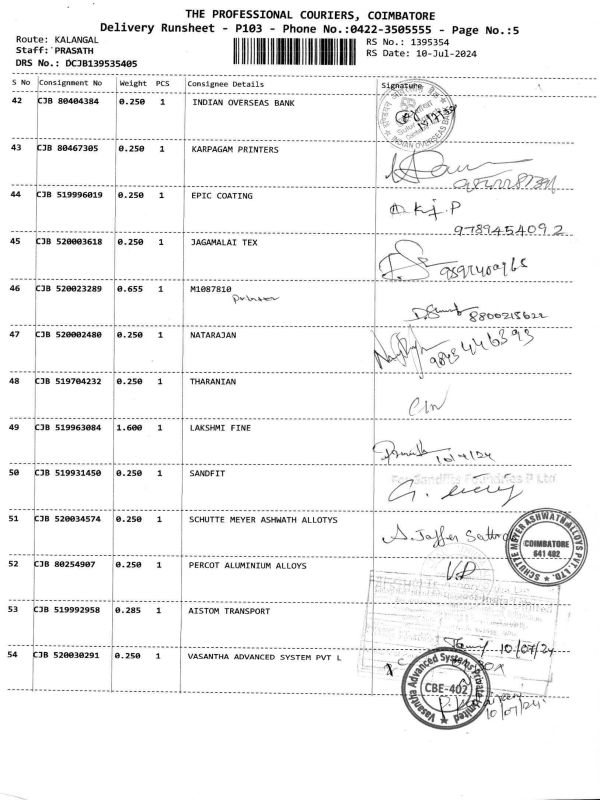 THE PROFESSIONAL COURIERS, COIMBATORE
Delivery Runsheet - P103 - Phone No.:0422-3505555 - Page No.:5
Route: KALANGAL
Staff: PRASATH
DRS No.: DCJB139535405
RS No.: 1395354
RS Date: 10-Jul-2024
S No Consignment No Weight PCS Consignee Details Signature
42 CJB 80404384 0.250 1 INDIAN OVERSEAS BANK
43 CJB 80467305 0.250 1 KARPAGAM PRINTERS
44 CJB 519996019 0.250 1 EPIC COATING
9789454092
45 CJB 520003618 0.250 1 JAGAMALAI TEX
46 CJB 520023289 0.655 1 M1087810
8800215622
47 CJB 520002480 0.250 1 NATARAJAN
9843446393
48 CJB 519704232 0.250 1 THARANIAN
49 CJB 519963084 1.600 1 LAKSHMI FINE
10/7/24
50 CJB 519931450 0.250 1 SANDFIT
For Sandfits Foundries P Ltd
51 CJB 520034574 0.250 1 SCHUTTE MEYER ASHWATH ALLOTYS
A. Jaffer
SCHUTTE MEYER ASHWATH ALLOYS PVT. LTD.
COIMBATORE
641 402
52 CJB 80254907 0.250 1 PERCOT ALUMINIUM ALLOYS
53 CJB 519992958 0.285 1 AISTOM TRANSPORT
10/07/24
54 CJB 520030291 0.250 1 VASANTHA ADVANCED SYSTEM PVT L
Vasantha Advanced Systems Private Limited
CBE-402
10/07/24